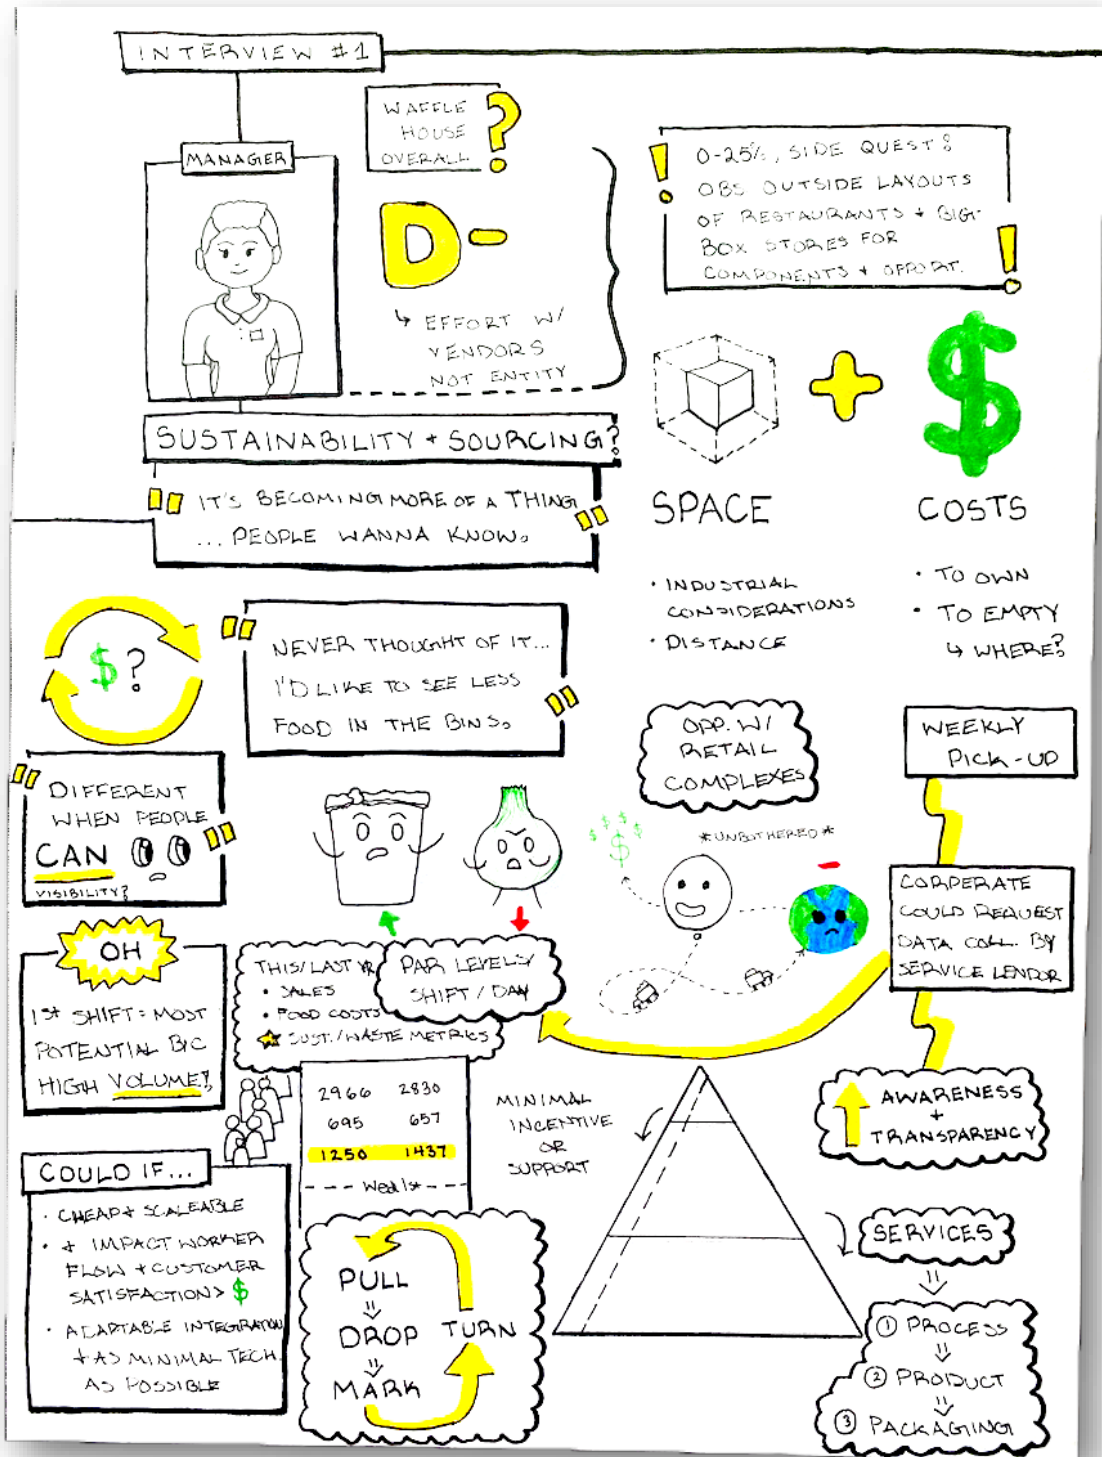 INTERVIEW #1
MANAGER
WAFFLE
HOUSE
OVERALL ?
D-
↳ EFFORT W/
VENDORS
NOT ENTITY
! 0-25%, SIDE QUEST:
OBS OUTSIDE LAYOUTS
OF RESTAURANTS + BIG-
BOX STORES FOR
COMPONENTS + OPPORT. !
SUSTAINABILITY + SOURCING?
"IT'S BECOMING MORE OF A THING
... PEOPLE WANNA KNOW."
+
$
SPACE
• INDUSTRIAL
CONSIDERATIONS
• DISTANCE
COSTS
• TO OWN
• TO EMPTY
↳ WHERE?
$?
"NEVER THOUGHT OF IT...
I'D LIKE TO SEE LESS
FOOD IN THE BINS."
"DIFFERENT
WHEN PEOPLE
CAN"
VISIBILITY?
OPP. W/
RETAIL
COMPLEXES
WEEKLY
PICK-UP
$ $ $ $ $
$
*UNBOTHERED*
CORPERATE
COULD REQUEST
DATA COLL. BY
SERVICE LENDOR
OH
1st SHIFT = MOST
POTENTIAL B/C
HIGH VOLUME!
THIS/LAST YR
• SALES
• FOOD COSTS
SUST./WASTE METRICS
PAR LEVELS/
SHIFT / DAY
2966 2830
695 657
1250 1437
--- Wed 1st ---
MINIMAL
INCENTIVE
OR
SUPPORT
AWARENESS
+
TRANSPARENCY
COULD IF...
• CHEAP + SCALEABLE
• + IMPACT WORKER
FLOW + CUSTOMER
SATISFACTION > $
• ADAPTABLE INTEGRATION
+ AS MINIMAL TECH.
AS POSSIBLE
PULL
DROP TURN
MARK
SERVICES
① PROCESS
② PRODUCT
③ PACKAGING